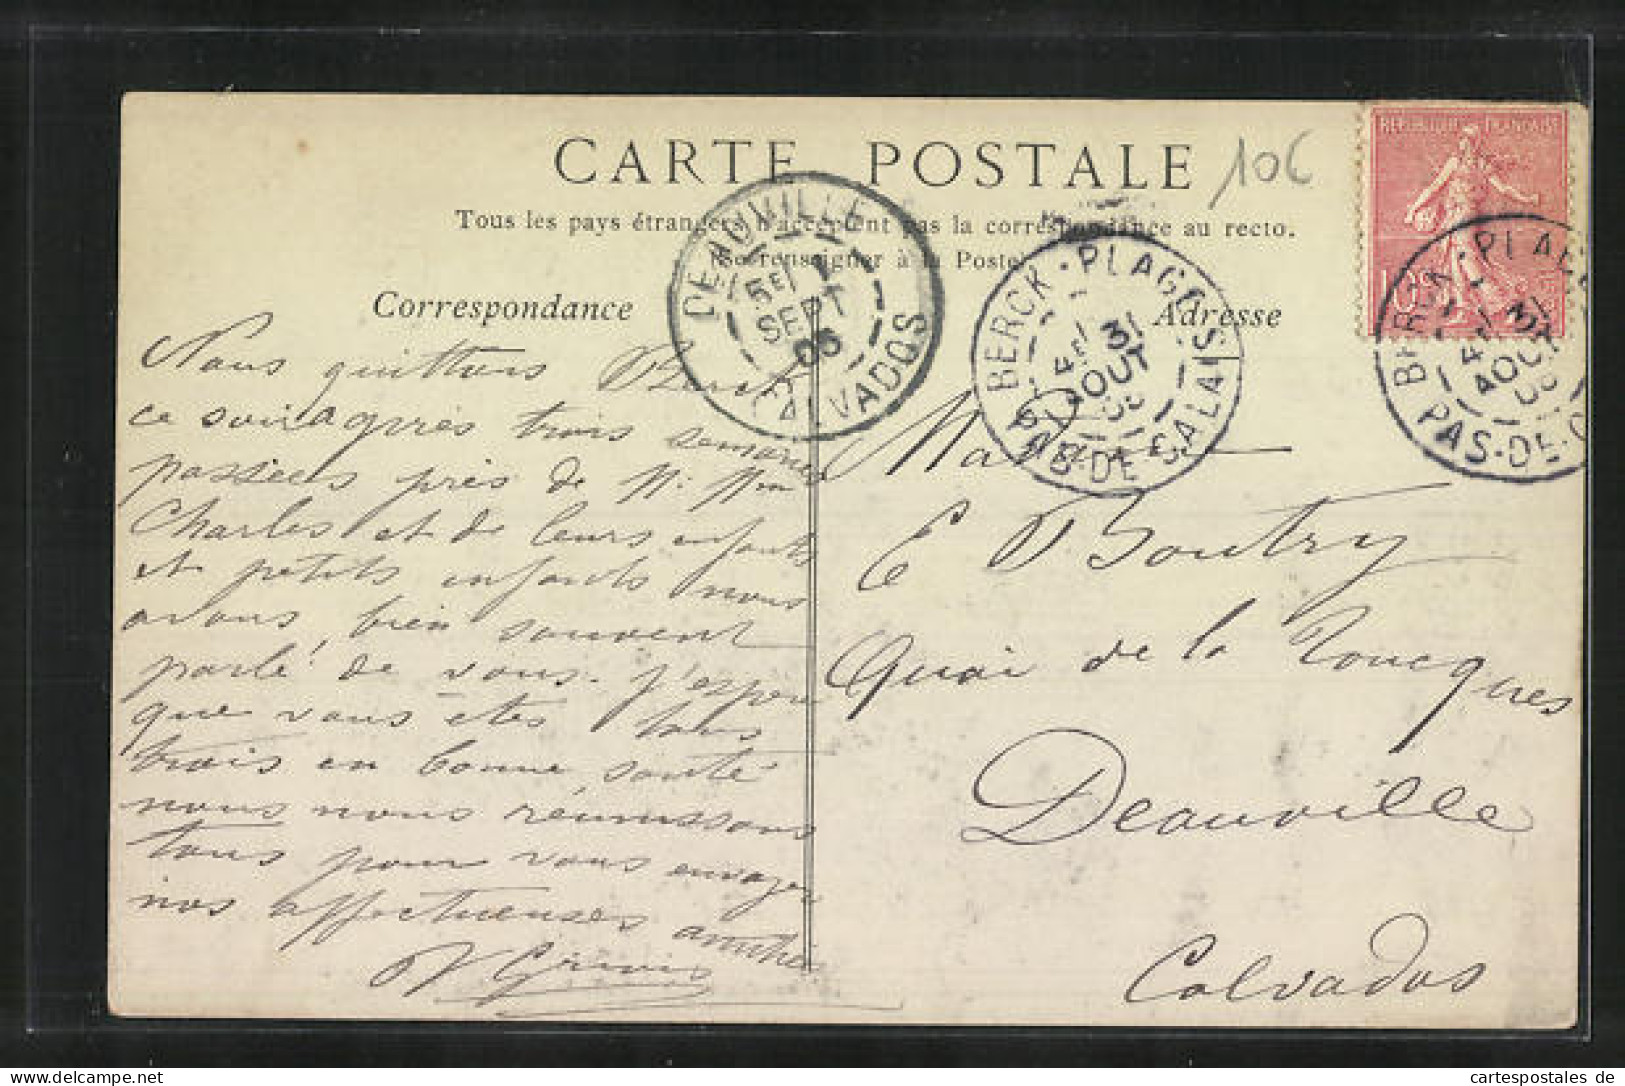 CARTE POSTALE
106
Tous les pays étrangers n'acceptent pas la correspondance au recto.
(Se renseigner à la Poste)
Correspondance
Adresse
REPUBLIQUE FRANÇAISE
10 c
DEAUVILLE
5E 1
SEPT
05
CALVADOS
BERCK-PLAGE
4E 31
AOUT
PAS-DE-CALAIS
BERCK-PLAGE
4 31
AOUT
PAS-DE-C
Nous quittons Berck
ce soir après trois semaines
passées près de Mr. Mme
Charles et de leurs enfants
et petits enfants nous
avons bien souvent
parlé de vous. J'espère
que vous êtes tous
trois en bonne santé
nous nous réunissons
tous pour vous envoyer
nos affectueuses amitiés
Madame
E Boutry
Quai de la Toucques
Deauville
Calvados
cartespostales de